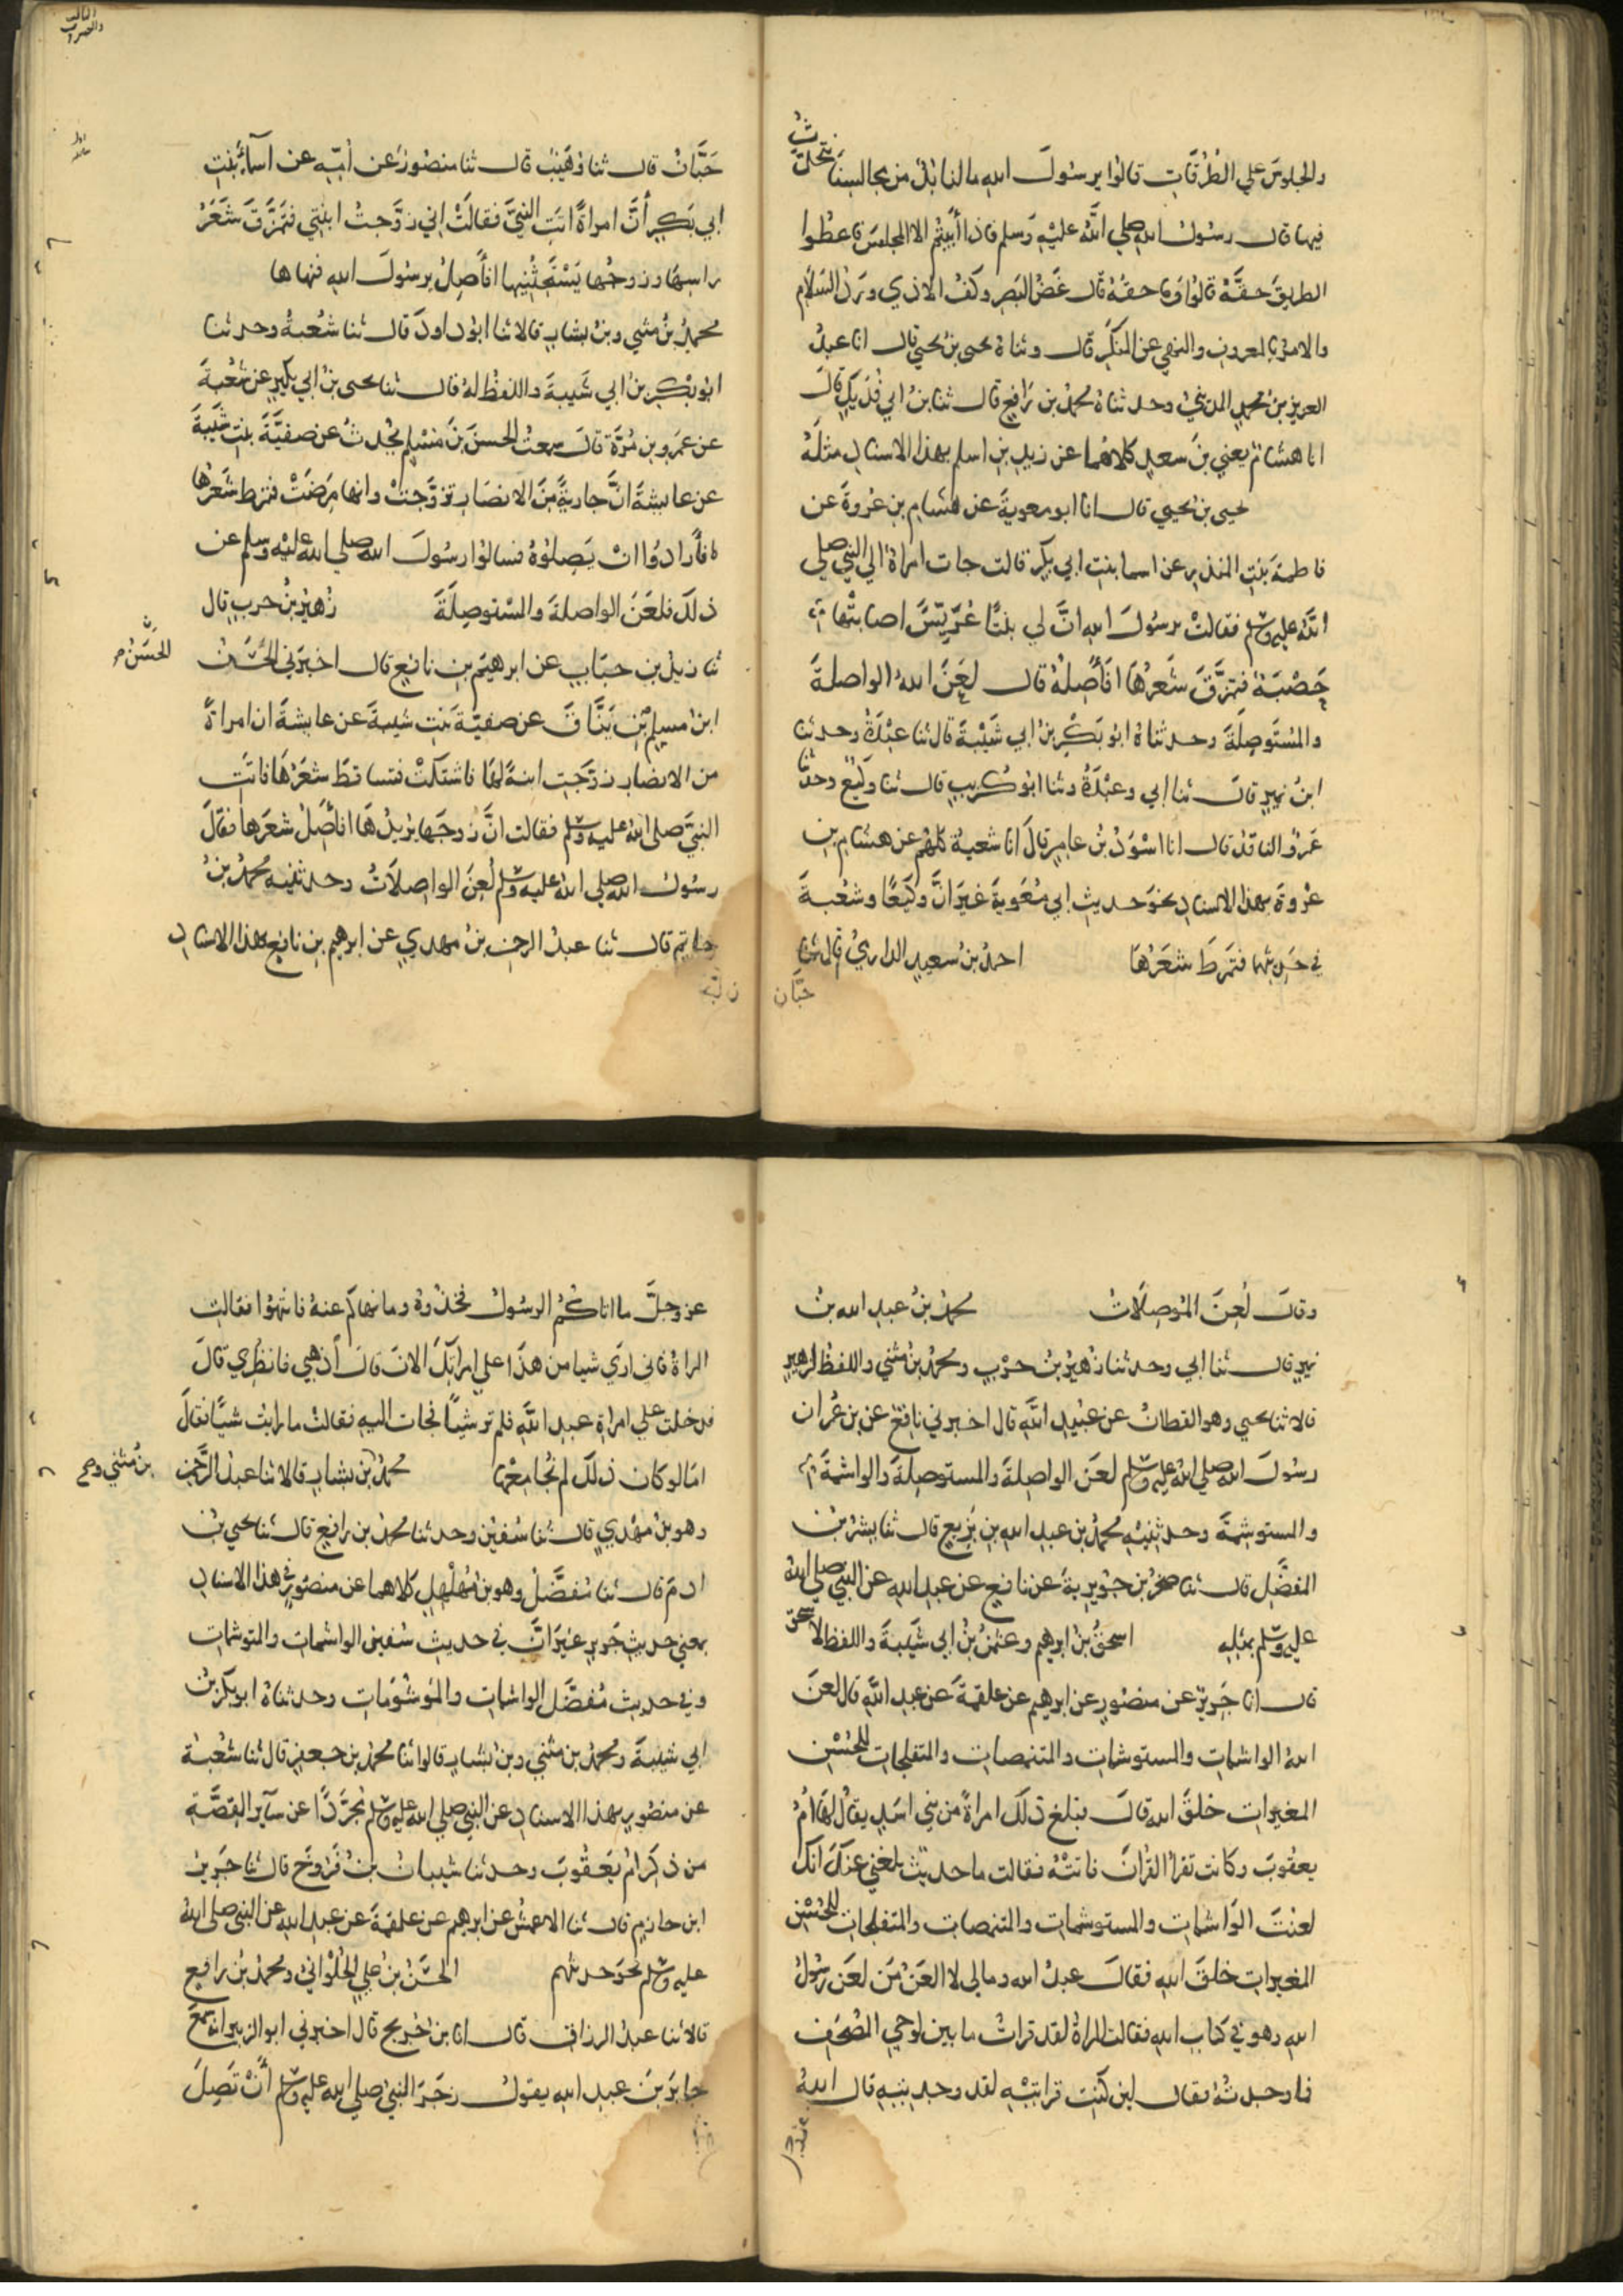 والجلوسَ علي الطُرُقاتِ قالوا يرسُولَ الله مالنا بُدٌّ من مجالسِنَا نتحدّثُ
فيها قال رسُولُ الله صلي اللَّهُ عليْهِ وَسلم فاذا أَبَيْتُم الا المجلسَ فاعطُوا
الطريقَ حقَّهُ قالوا وَما حقهُ قال غَضُّ البَصرِ وكَفُّ الاذي وَرَدُّ السَّلامِ
والامرُ بالمعروفِ والنهي عن المنكَرِ قال وثناهُ يحيي بن يحيي قال انا عبدُ
العزيزِ بن محمدٍ المدَني وحدثناهُ محمدُ بن رَافعٍ قال ثنا بنُ ابي فُدَيكٍ قالَ
انا هشامٌ يعني بنَ سعدٍ كلاهُما عن زيدِ بنِ اسلمَ بهذا الاسنادِ مثلَهُ
يحيى بنُ يحيي قال انا ابو معويةَ عن هشامِ بنِ عُروةَ عن
فاطمةَ بنتِ المنذرِ عن اسما بنتِ ابي بكر قالت جات امراةٌ الي النبي صلي
اللَّهُ عليه وسلم فقالتْ يرسُولَ الله انَّ لي بنتًا عُرَيِّسًا اصابتْها
حَصْبَةٌ فتمرَّقَ شَعرُهَا افَأَصِلُهُ قال لعَنَ اللهُ الواصلةَ
والمُستَوصِلَةَ وحدثناهُ ابو بَكْرِ بنُ ابي شَيْبةَ قال ثنا عبْدَةُ وحدثنا
ابنُ نميرٍ قال ثنا ابي وعبْدَةُ وثنا ابو كُريبٍ قال ثنا وكيعٌ وحدثنا
عَمرٌو الناقدُ قال انا اسْوَدُ بنُ عامرٍ قالَ انا شعبةُ كلهُم عن هشامِ بن
عُروةَ بهذا الاسنادِ نحوَ حديثِ ابي مُعَويةَ غيرَ انَّ وكيعًا وشُعْبةَ
في حَديثهما فتمرّطَ شعَرُهَا احمدُ بن سعيدٍ الدارميُّ قال ثنا
حبَّان
حَبَّانُ قال ثنا وُهَيْبٌ قال ثنا منصُورٌ عن أمِّهِ عن اسمآءَ بنتِ
ابي بَكرٍ أنَّ امراةً اتتِ النبيَّ فقالتْ اني زوَّجتُ ابنتي فتمَرَّقَ شَعَرُ
راسِهَا وزوجُها يَسْتَحِثُّنيها افأَصِلُ يرسُولَ الله فنهاها
محمدُ بنُ مثني وبنُ بشارٍ قالا ثنا ابو داودَ قال ثنا شُعبةُ وحدثنا
ابو بكرِ بنُ ابي شَيبةَ واللفظُ لهُ قال ثنا يحيى بنُ ابي بكيرٍ عن شُعْبةَ
عن عَمرِو بنِ مُرَّةَ قال سمعتُ الحسنَ بنَ مُسْلِمٍ يُحدثُ عن صفيَّةَ بنتِ شَيبةَ
عن عايشةَ انَّ جاريةً منَ الانصارِ تزوَّجتْ وانها مرِضَتْ فتمرطَ شعَرُها
فأرادُوا انْ يَصِلوُهُ فسالوا رسُولَ الله صلي الله عليْهِ وسلم عن
ذلكَ فلعَنَ الواصلةَ والمستوصِلةَ زُهيرُ بنُ حربٍ قال
ثنا زيدُ بن حبَابٍ عن ابرهيم بن نافعٍ قال اخبرَني الحَسَنُ
الحَسَنُ
ابنُ مُسلمِ بْنِ يَنَّاقَ عن صفيّةَ بنتِ شيبةَ عن عايشةَ ان امراةً
من الانصارِ زوَّجتِ ابنةً لهَا فاشتكتْ فتساقطَ شعَرُهَا فاتتِ
النبيَّ صلي اللهُ عليه وسلم فقالت انَّ زوجَها يريدُهَا افأَصِلُ شعَرَها فقالَ
رسُولُ الله صلي اللهُ عليه وسلم لُعِنَ الواصِلاتُ وحدثنيه محمدُ بنُ
حاتمٍ قال ثنا عبدُ الرحمنِ بنُ مهدي عن ابرهيم بنِ نافعٍ بهذا الاسنادِ
وقالَ لُعِنَ المُوصِلَاتُ محمدُ بنُ عبدِ الله بنُ
نميرٍ قال ثنا ابي وحدثنا زهيرُ بنُ حرْبٍ ومحمدُ بنُ مثني واللفظُ لزهيرٍ
قالا ثنا يحيي وهو القطانُ عن عبيدِ اللَّهِ قال اخبرني نافعٌ عن بن عُمر ان
رسُولَ الله صلي اللهُ عليه وسلم لعَنَ الواصلةَ والمستوصِلةَ والواشمةَ
والمستوشِمةَ وحدثنيهِ محمدُ بن عبدِ الله بنِ بَزيعٍ قال ثنا بِشرُ بنُ
المفضَّلِ قال ثنا صخرُ بن جُوَيريةَ عن نافعٍ عن عبدِ اللهِ عن النبي صلي اللهُ
عليه وسلم بمثلِهِ اسحقُ بنُ ابرهيم وعثمنُ بنُ ابي شَيْبَةَ واللفظ لاسحق
قال انا جَريرٌ عن منصُورٍ عن ابرهيم عن علقمةَ عن عبدِ اللَّهِ قال لعَنَ
اللهُ الواشماتِ والمستوشماتِ والمتنمصاتِ والمتفلجاتِ للحُسْنِ
المغيراتِ خلقَ الله قالَ فبلغ ذلكَ امراةً من بني اسَدٍ يقالُ لهَا امُّ
يعقوبَ وكانت تقرأُ القُرانَ فاتتْهُ فقالت ما حديثٌ بلغني عنكَ انكَ
لعنْتَ الوَاشماتِ والمستوشماتِ والمتنمصاتِ والمتفلجاتِ للحُسْنِ
المغيراتِ خلقَ اللهِ فقالَ عبدُ الله ومالي لا العَنُ مَن لعَن رسُولُ
الله وهو في كتابِ اللهِ فقالت المراةُ لقد قراتُ ما بين لوحيِ المُصْحَفِ
فما وجدتُهُ فقال لين كنتِ قراتِيْهِ لقد وجدتيهِ قال اللهُ
عز وجلَّ ما اتاكُمُ الرسُولُ فخذوهُ وما نهاكم عنهُ فانتهوُا فقالتِ
المراةُ فاني اري شيا من هذَا علي امراتكَ الانَ قالَ اذهبي فانظُري قالَ
فدخلتْ علي امراةِ عبدِ اللَّهِ فلم ترَ شيًا فجات اليهِ فقالتْ ما رايتُ شيًا فقالَ
امَا لو كان ذلكَ لم نُجامِعْها محمدُ بن بشارٍ قالا ثنا عبدُ الرَّحمنِ
بنُ مُثني و صح
وهو بنُ مهْديٍ قال ثنا سُفين وحدثنا محمدُ بن رافعٍ قال ثنا يحيي بنُ
ادمَ قال ثنا مُفضَّلٌ وهو بنُ مُهَلْهِلٍ كلاهما عن منصُورٍ في هذا الاسنادِ
بمعني حديثِ جَريرٍ غيرَ انَّ في حديثِ سُفينَ الواشماتِ والمتوشماتِ
وفي حديثِ مُفضَّلٍ الواشماتِ والموْشُومَاتِ وحدثناهُ ابو بكرِ بنُ
ابي شيبةَ ومحمدُ بن مثني وبنُ بشارٍ قالوا ثنا محمدُ بن جعفرٍ قال ثنا شُعْبةُ
عن منصُورٍ بهذا الاسنادِ عن النبي صلي الله عليه وسلم مُجرَّدًا عن سآيرِ القصَّةِ
من ذكرِ امِّ يعَقُوبَ وحدثنا شيبانُ بنُ فرُّوخَ قال ثنا جَريرُ
ابن حازمٍ قال ثنا الاعمشُ عن ابرهيم عن علقمةَ عن عبدِ الله عن النبي صلي اللهُ
عليه وسلم نحوَ حديثهم الحَسَنُ بنُ عليٍّ الحُلْوانيُّ ومحمدُ بنُ رافعٍ
قالا ثنا عبدُ الرزاقِ قال انا بن جُريجٍ قال اخبرني ابو الزبيرِ انهُ سَمعَ
جابرَ بنَ عبدِ الله يقولُ زجَرَ النبيُّ صلي الله عليه وسلم أَنْ تَصِلَ